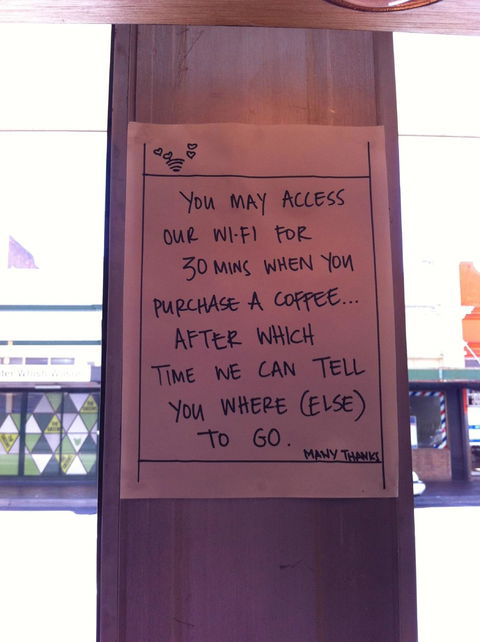 YOU MAY ACCESS
OUR WI-FI FOR
30 MINS WHEN YOU
PURCHASE A COFFEE...
AFTER WHICH
TIME WE CAN TELL
YOU WHERE (ELSE)
TO GO.
MANY THANKS